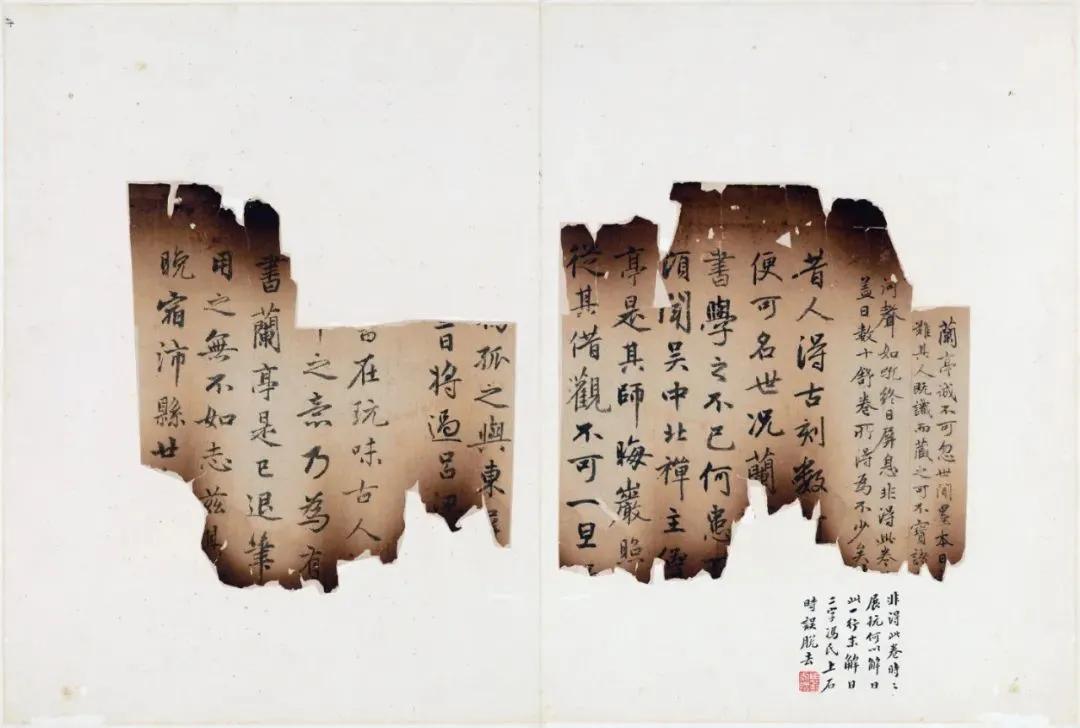 蘭亭誠不可忽世間墨本日
難其人既識而藏之可不寶諸
河聲如吼終日屏息非得此卷
蓋日數十舒卷所得為不少矣
昔人得古刻數
便可名世況蘭
書學之不已何患
頃聞吳中北禪主僧
亭是其師晦巖照
從其借觀不可一旦
非得此卷時々
展玩何以解日
此一行末解日
二字馮氏上石
時誤脫去
孤之與東
日將過呂梁
在玩味古人
之意乃為有
書蘭亭是已退筆
用之無不如志茲其
晚宿沛縣廿